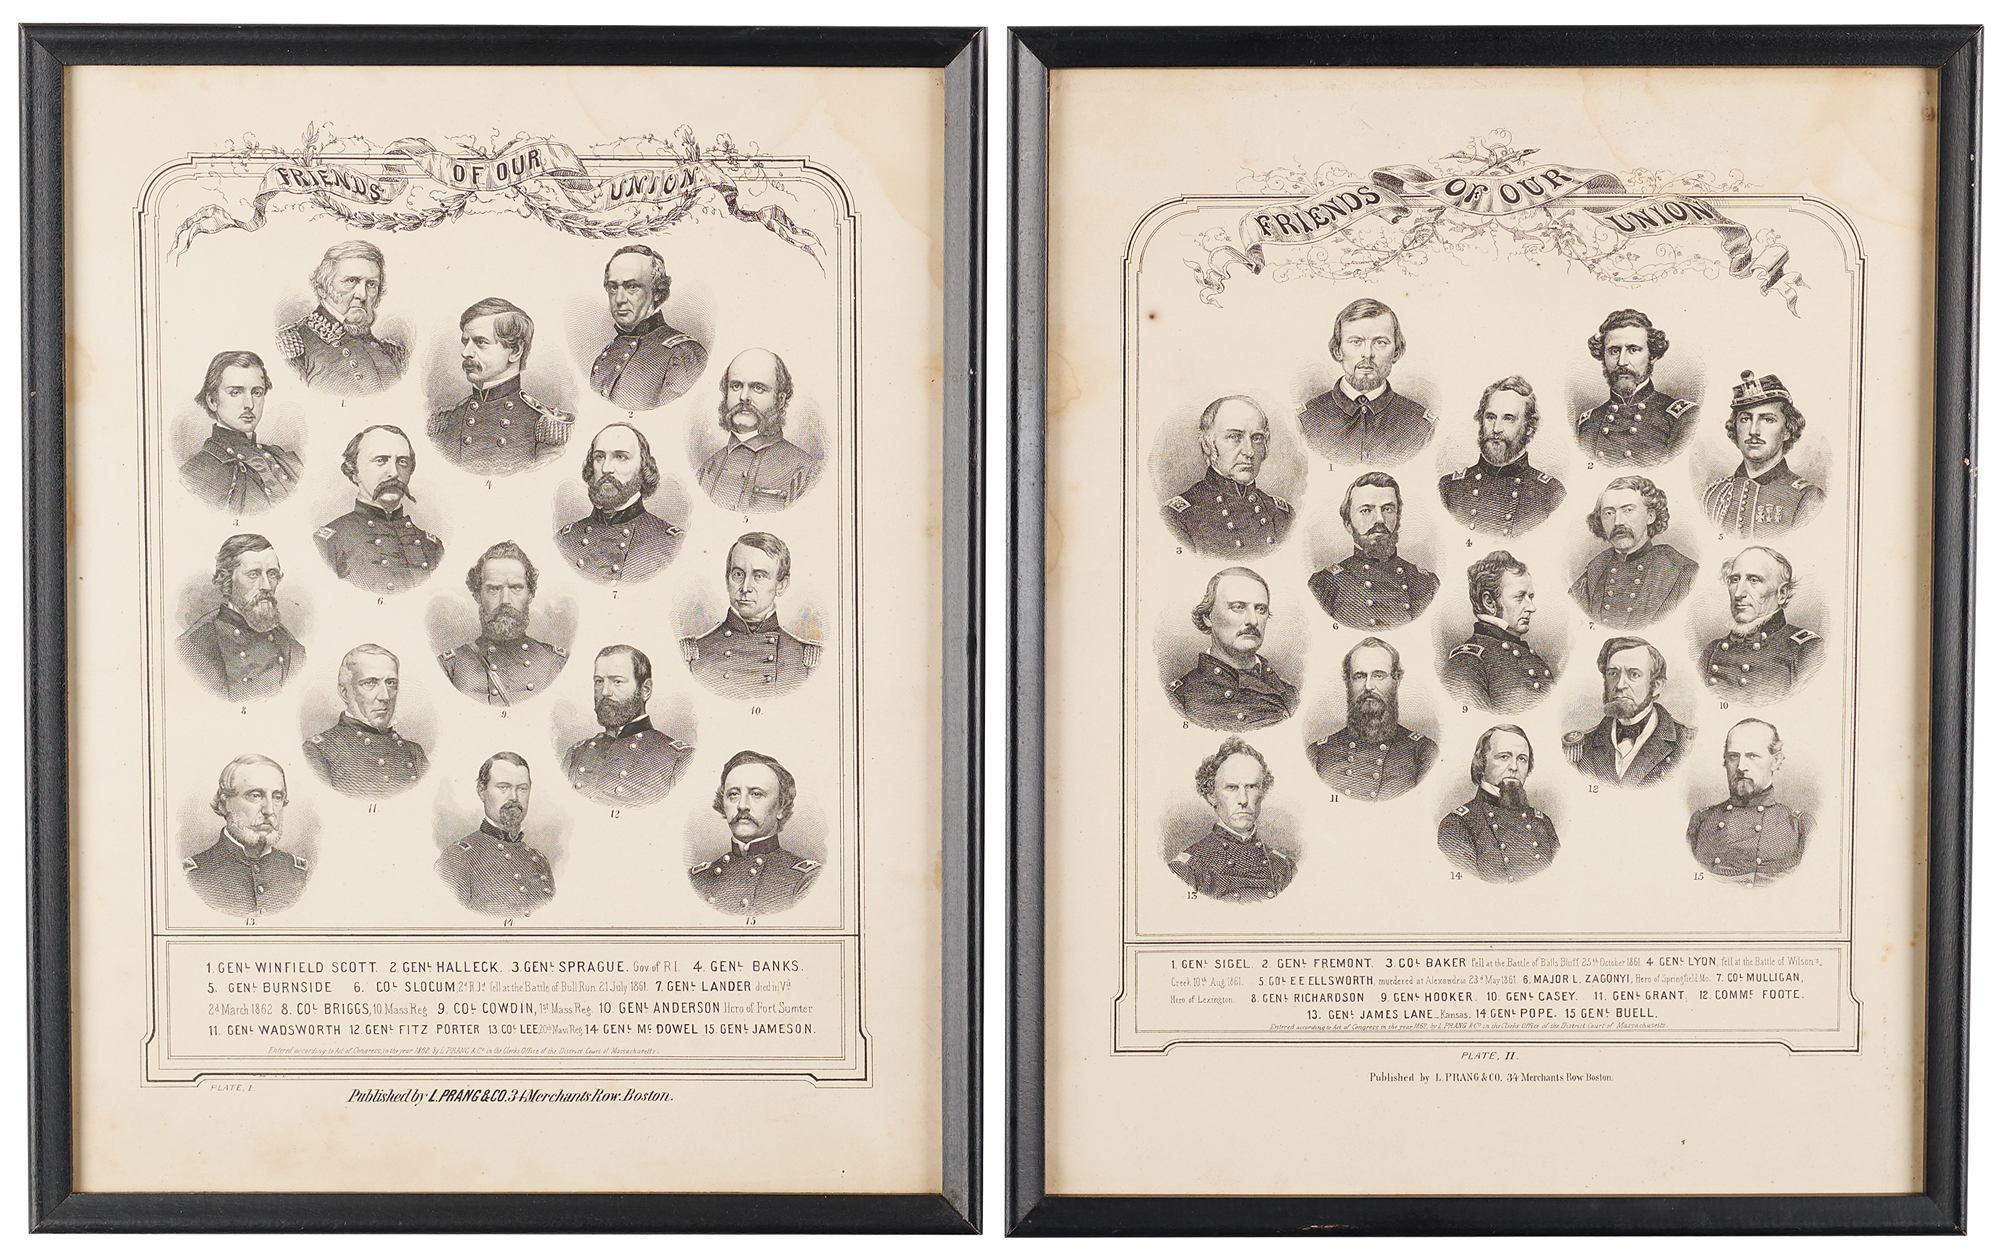 FRIENDS OF OUR UNION.
1.
2
3.
4
5.
6
7.
8
9.
10.
11
12
13.
14
15
1. GENL WINFIELD SCOTT. 2. GENL HALLECK. 3. GENL SPRAGUE. Gov. of R.I. 4. GENL BANKS.
5. GENL BURNSIDE 6. COL SLOCUM, 2d R.I'd fell at the Battle of Bull Run 21 July 1861. 7. GENL LANDER died in Va
2d March 1862 8. COL BRIGGS, 10 Mass Reg. 9. COL COWDIN, 1st Mass Reg. 10. GENL ANDERSON Hero of Fort Sumter
11. GENL WADSWORTH 12. GENL FITZ PORTER 13 COL LEE, 20th Mass Reg. 14 GENL Mc DOWEL 15. GENL JAMESON.
Entered according to Act of Congress, in the year 1862 by L. PRANG & Co. in the Clerks Office of the District Court of Massachusetts.
PLATE, I.
Published by L. PRANG & CO. 34 Merchants Row. Boston.
FRIENDS OF OUR UNION
1
2
3
4
5
6
7.
8
9
10
11
12
13
14
15
1. GENL SIGEL. 2. GENL FREMONT. 3. COL BAKER fell at the Battle of Balls Bluff 25th October 1861. 4. GENL LYON, fell at the Battle of Wilson's
Creek 10th Aug 1861. 5. COL E E ELLSWORTH, murdered at Alexandria 23d May 1861. 6. MAJOR L. ZAGONYI, Hero of Springfield Mo. 7. COL MULLIGAN,
Hero of Lexington. 8. GENL RICHARDSON 9. GENL HOOKER. 10. GENL CASEY. 11. GENL GRANT. 12. COMMC FOOTE.
13. GENL JAMES LANE_ Kansas. 14. GENL POPE. 15 GENL BUELL.
Entered according to Act of Congress in the year 1862, by L. PRANG & Co. in the Clerks Office of the District Court of Massachusetts.
PLATE, II.
Published by L. PRANG & CO. 34 Merchants Row Boston.